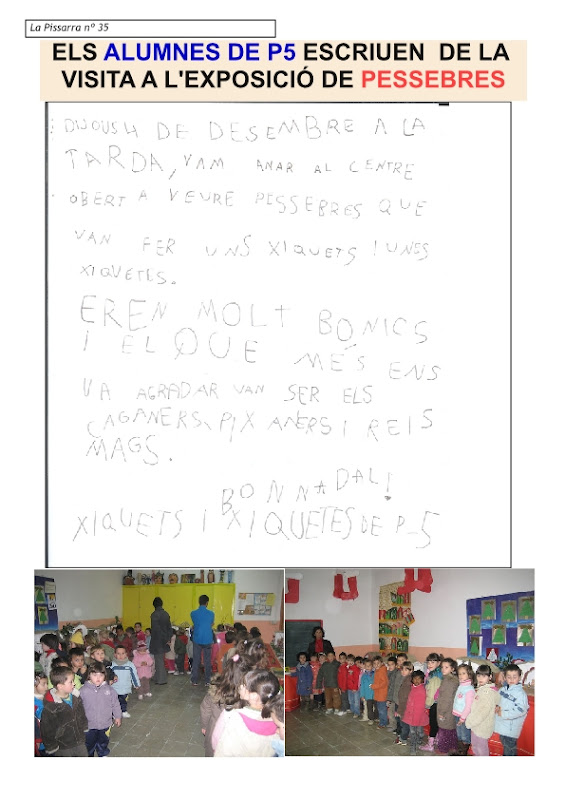 La Pissarra nº 35
ELS ALUMNES DE P5 ESCRIUEN DE LA
VISITA A L'EXPOSICIÓ DE PESSEBRES
DIJOUS 14 DE DESEMBRE A LA
TARDA, VAM ANAR AL CENTRE
OBERT A VEURE PESSEBRES QUE
VAN FER UNS XIQUETS I UNES
XIQUETES.
EREN MOLT BONICS
I EL QUE MÉS ENS
VA AGRADAR VAN SER ELS
CAGANERS, PIXANERS I REIS
MAGS.
BON NADAL!
XIQUETS I XIQUETES DE P-5